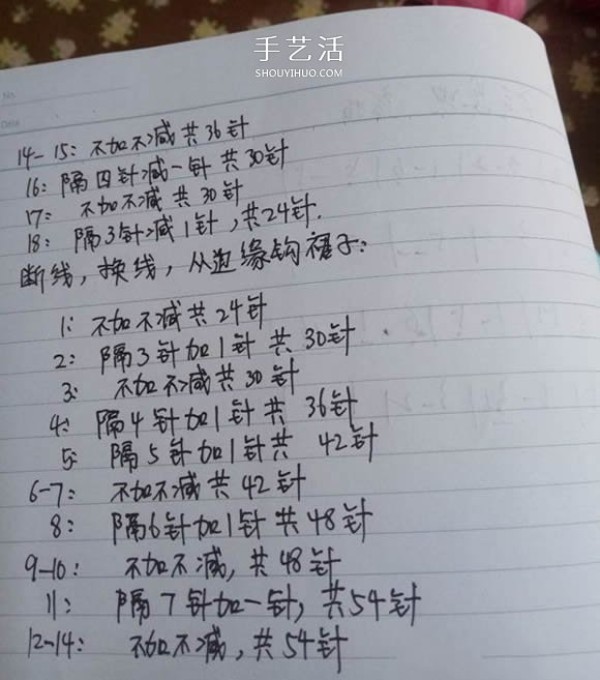 手艺活
SHOUYIHUO.COM
No.
Date
14-15: 不加不减共36针
16: 隔四针减一针 共30针
17: 不加不减 共30针
18: 隔3针减1针,共24针.
断线,换线,从边缘钩裙子:
1: 不加不减共24针
2: 隔3针加1针 共30针.
3: 不加不减共30针
4: 隔4针加1针共 36针
5: 隔5针加1针共 42针
6-7: 不加不减共42针
8: 隔6针加1针共48针
9-10: 不加不减,共48针
11: 隔7针加一针,共54针
12-14: 不加不减,共54针